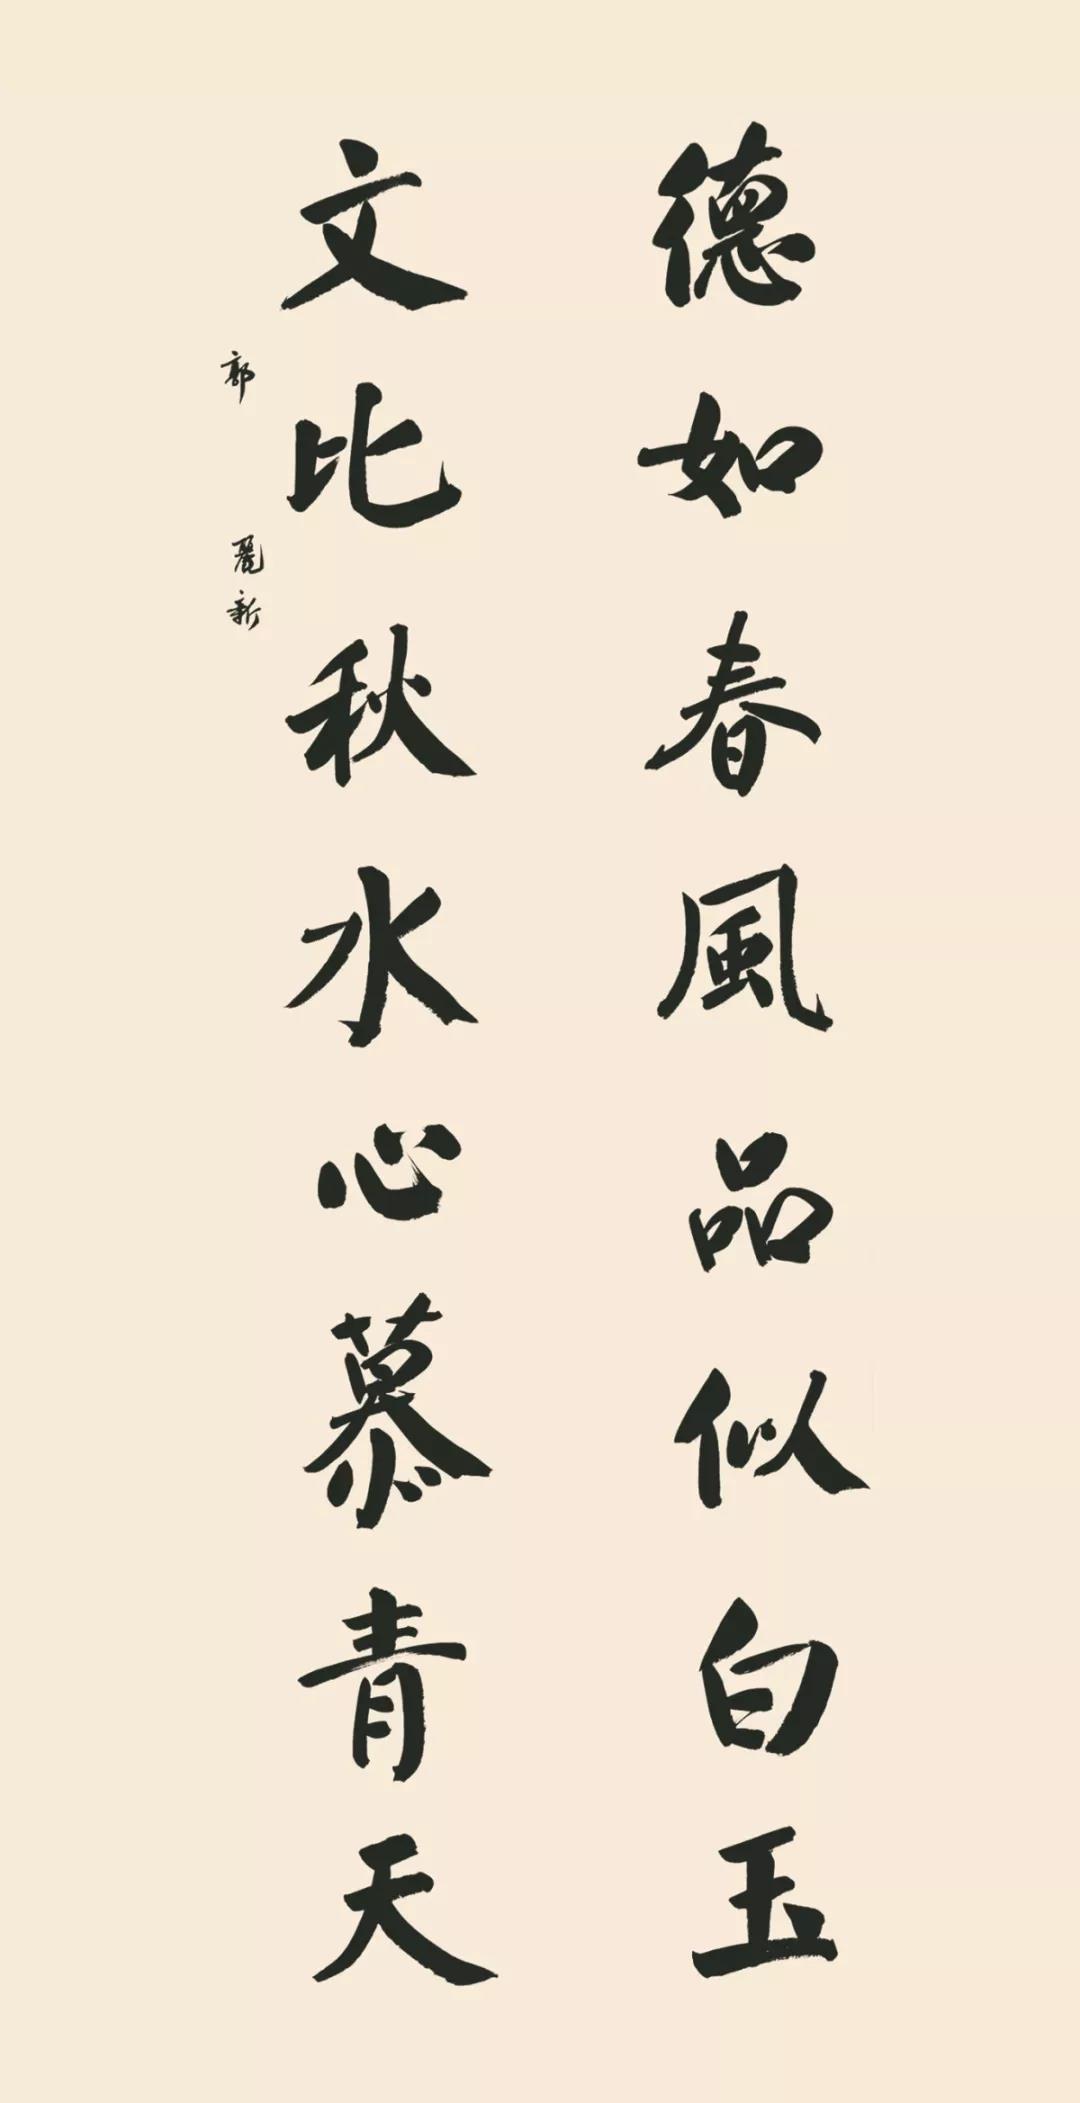 德如春風品似白玉
文比秋水心慕青天
郭麗新